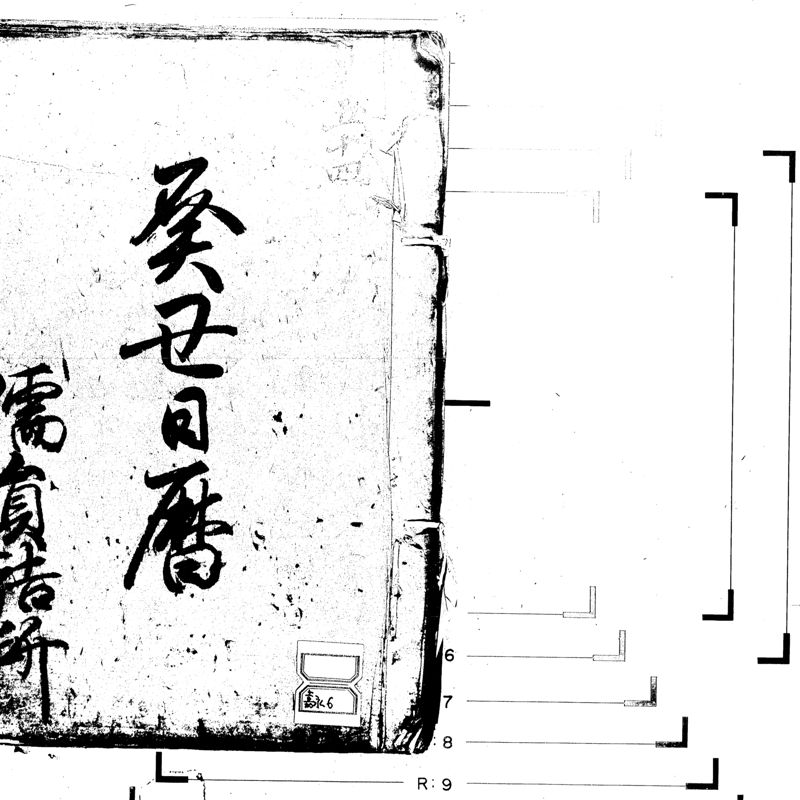 癸丑日暦
儒員詰所
嘉永6
6
7
:8
R:9